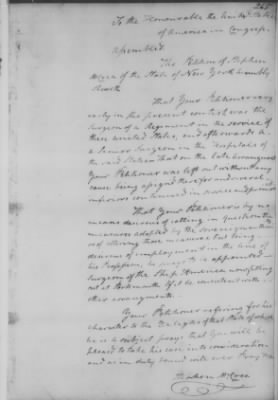 To the Honourable the United States
of America in Congress
Assembled
The Petition of Stephen
McCrea of the State of New York humbly
Sheweth
That Your Petitioner very
early in the present contest was the
Surgeon of a Regiment in the service of
these United States, and afterwards a
Senior Surgeon in the Hospitals of
the said States That on the late arrangement
Your Petitioner was left out without any
cause being assigned therefor and several
continued in service and
That Your Petitioner is by no
means desirous of calling in question the
measures adopted by the sovereign
but being
desirous of employment in the line of
his Profession, he prays to be appointed
Surgeon of the Ship America now fitting
out at Portsmouth if it be consistent with
other arrangements.
Your Petitioner refering for his
character to the Delegates of that State of which
he is a subject prays that You will be
pleased to take his case into consideration
and as in duty bound will ever Pray
Stephen McCrea